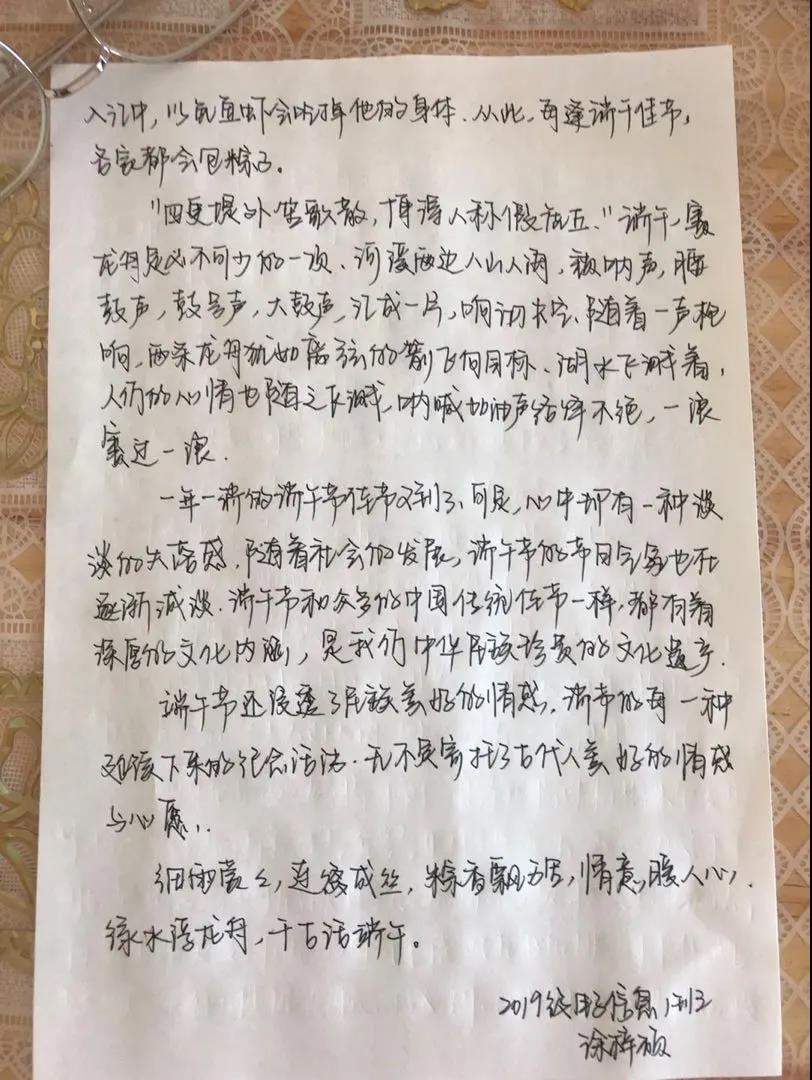 入江中，以免鱼虾会吃掉他的身体．从此，每逢端午佳节，
各家都会包粽子。
"四更堤外笙歌散，博得人称假端五．"端午，赛
龙舟是必不可少的一项．河边两边人山人海，呐声，腰
鼓声，鼓号声，大鼓声，汇成一片，响彻．随着一声枪
响，两条龙舟犹如离弦的箭飞向目标．湖水飞溅着，
人们的心情也随之飞溅，呐喊加油声络绎不绝，一浪
赛过一浪．
一年一端的端午节佳节又到了．可是，心中却有一种淡
淡的失落感．随着社会的发展，端午节的节日气象也在
逐渐减淡．端午节和众多的中国传统佳节一样，都有着
深厚的文化内涵，是我们中华民族珍贵的文化遗产．
端午节还浸透了民族美好的情感．端节的每一种
延续下来的纪念活动．无不是寄托了古代人美好的情感
与心愿．
细雨蒙々，连绵成丝，粽香飘万居，情意暖人心，
绿水浮龙舟，千古话端午。
2019级信息
徐梓硕